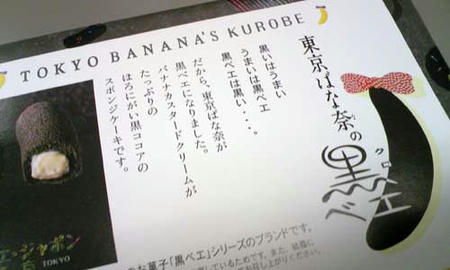 TOKYO BANANA'S KUROBE
東京ばな奈の
黒ベエ
クロ
黒いはうまい
うまいは黒ベエ
黒ベエは黒い・・・。
だから、東京ばな奈が
黒ベエになりました。
バナナカスタードクリームが
たっぷりの
ほろにがい黒ココアの
スポンジケーキです。
エ・ジャポン
TOKYO
お菓子「黒ベエ」シリーズのブランドです。